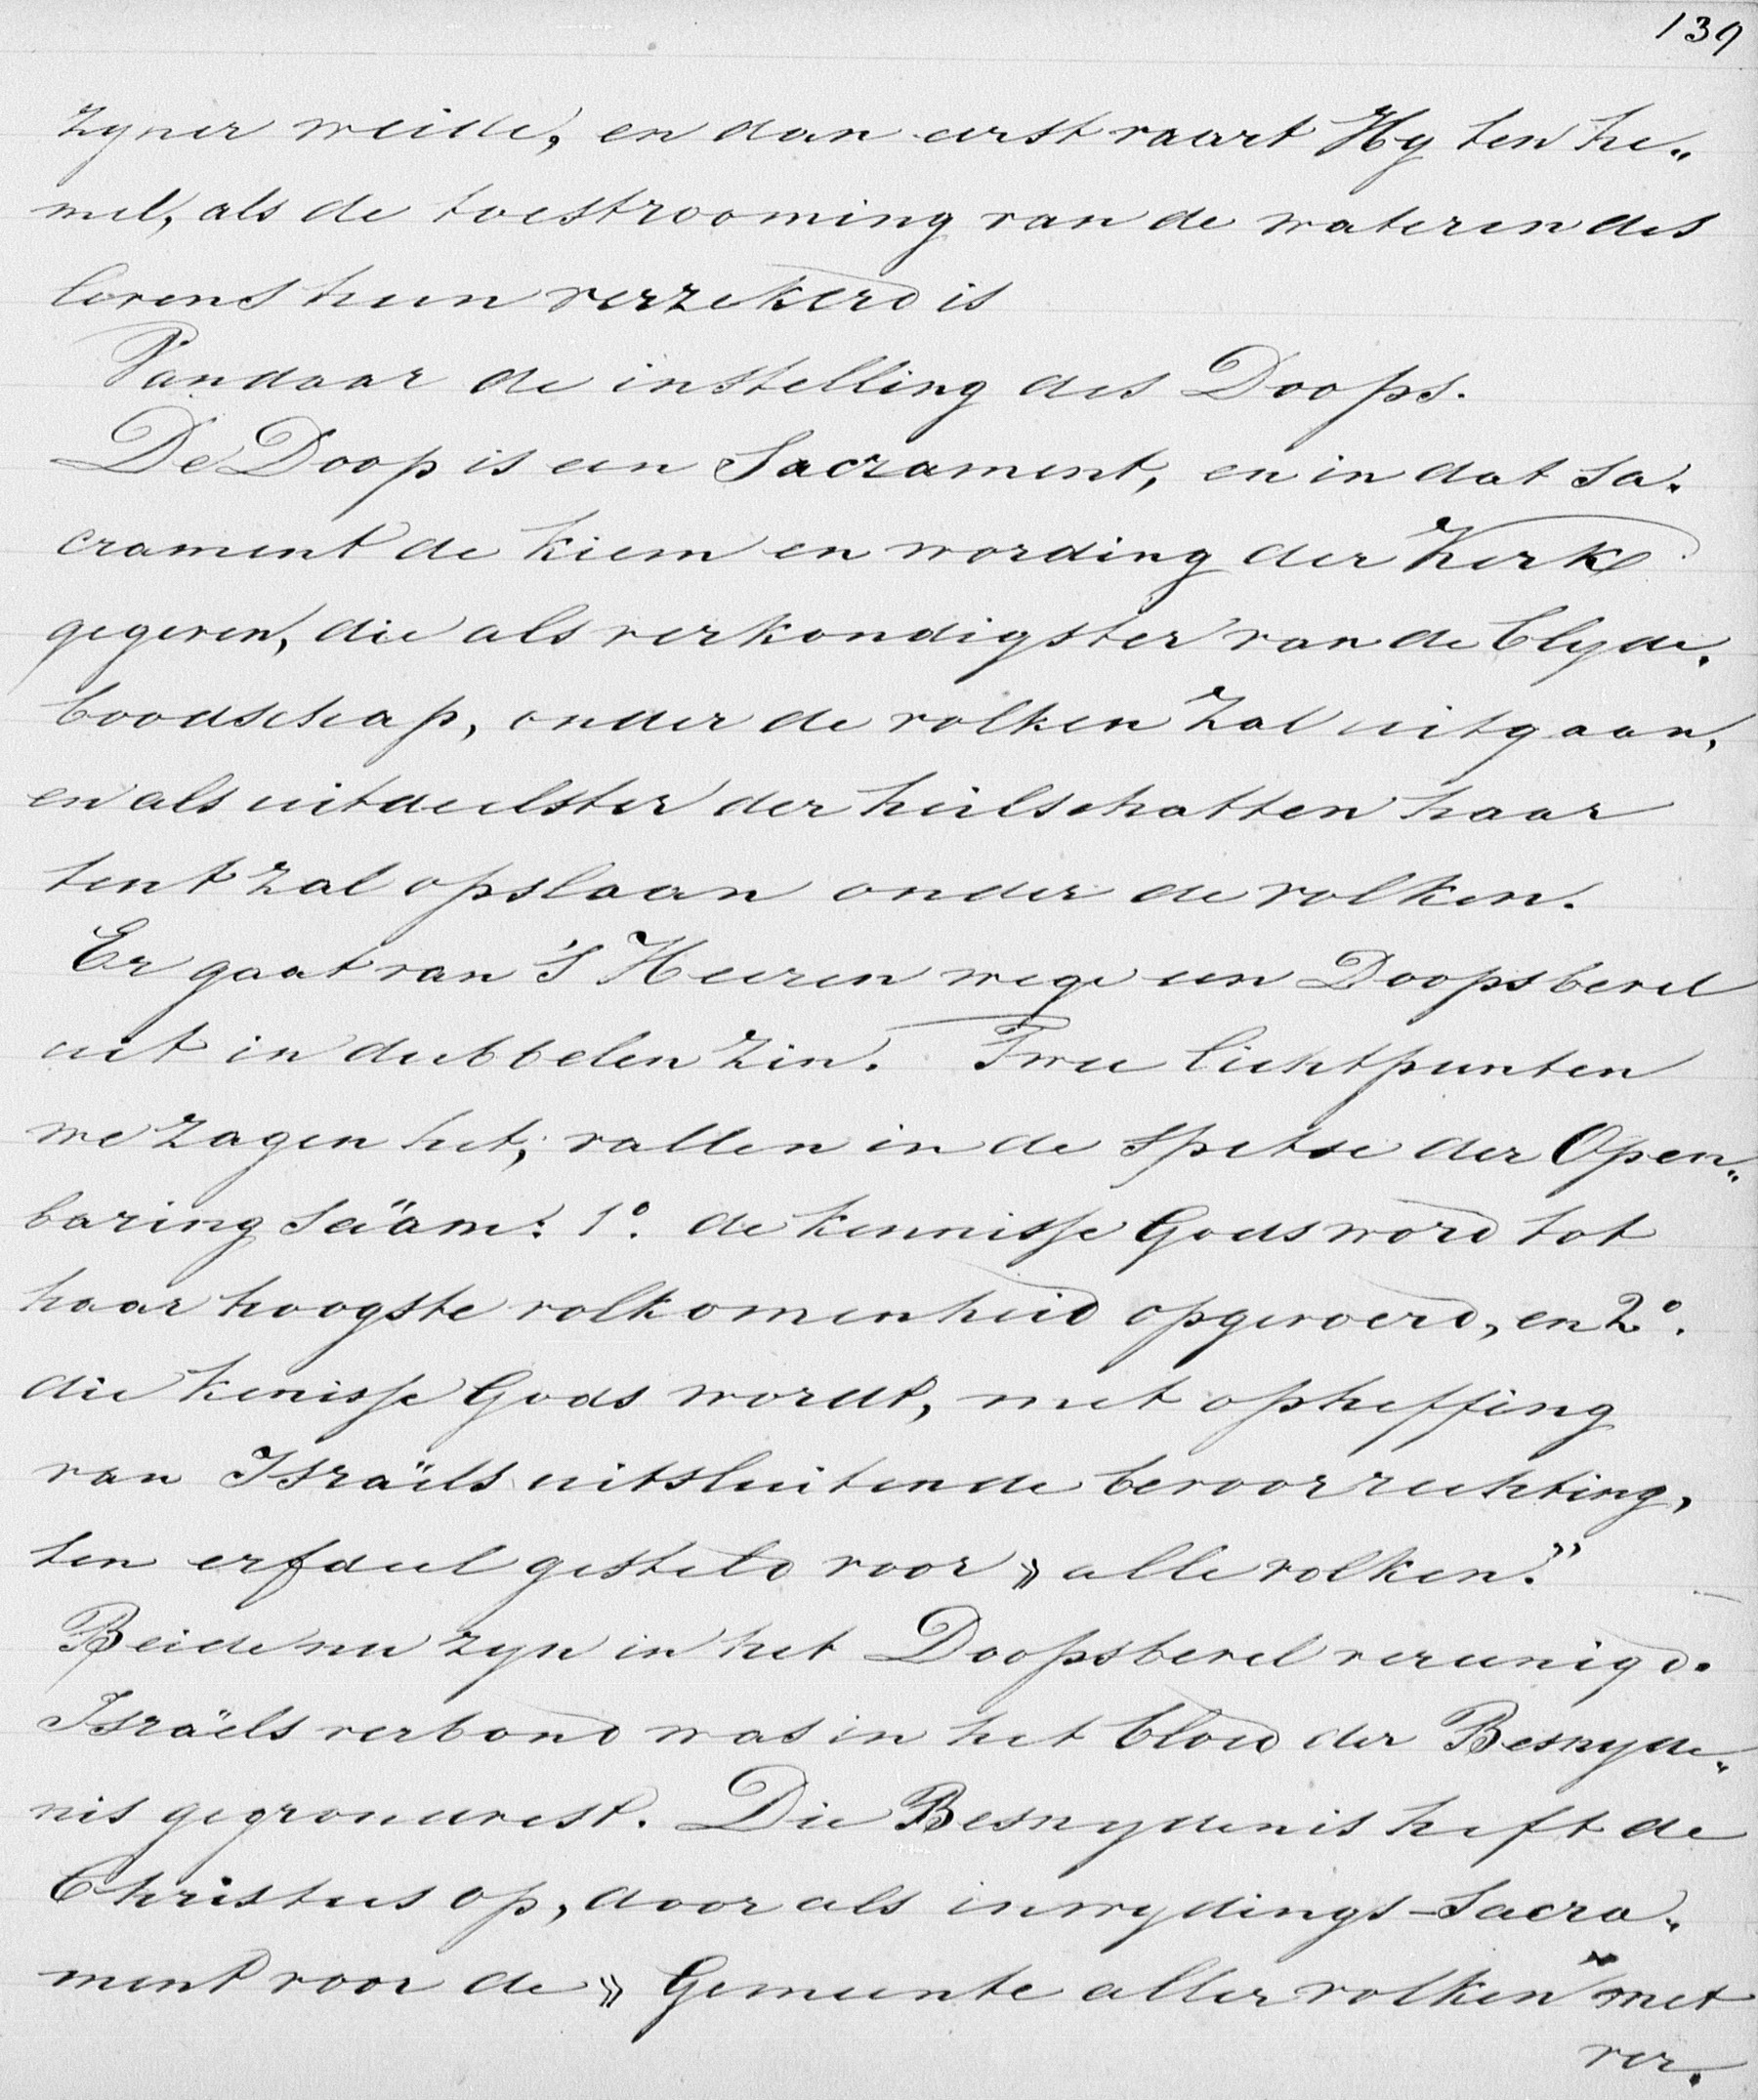 139
zyner weide, en dan eerst vaart Hy ten he„
mel, als de toestrooming van de wateren des
levens hun verzekerd is
Vandaar de instelling des Doops.
De Doop is een Sacrament, en in dat Sa„
crament de kiem en wording der Kerk
gegeven, die als verkondigster van de blyde„
boodschap, onder de volken zal uitgaan,
en als uitdeelster der heilschatten haar
tent zal opslaan onder de volken.
Er gaat van 's Heeren wege een Doopsbevel
uit in dubbelen zin. Twee lichtpunten
we zagen het, vallen in de spetse der Open„
baring säam: 1º. de kennisse Gods word tot
haar hoogste volkomenheid opgevoerd, en 2º.
die kenisse Gods wordt, met opheffing
van Israëls uitsluitende bevoorrechting,
ten erfdeel gesteld voor » alle volken."
Beide nu zyn in het Doopsbevel vereenigd.
Israëls verbond was in het bloed der Besnyde„
nis gegrondvest. Die Besnydenis heft de
Christus op, door als inwydings-Sacra„
ment voor de » Gemeente aller volken" met
ver„